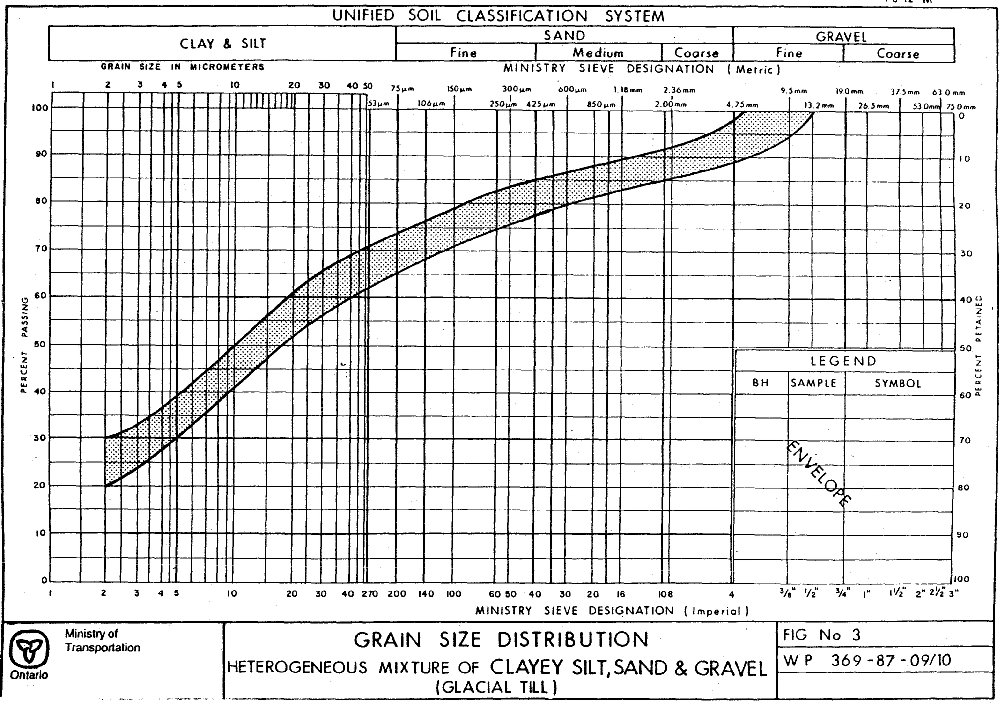 UNIFIED SOIL CLASSIFICATION SYSTEM
CLAY & SILT SAND GRAVEL
Fine Medium Coarse Fine Coarse
GRAIN SIZE IN MICROMETERS MINISTRY SIEVE DESIGNATION (Metric)
1 2 3 4 5 10 20 30 40 50 75µm 150µm 300µm 600µm 1.18mm 2.36mm 9.5mm 19.0mm 37.5mm 63.0mm
53µm 106µm 250µm 425µm 850µm 2.00mm 4.75mm 13.2mm 26.5mm 53.0mm 75.0mm
100 0
90 10
80 20
70 30
60 40
50 50
40 60
30 70
20 80
10 90
0 100
PERCENT PASSING
PERCENT RETAINED
LEGEND
BH SAMPLE SYMBOL
ENVELOPE
1 2 3 4 5 10 20 30 40 270 200 140 100 60 50 40 30 20 16 10 8 4 3/8" 1/2" 3/4" 1" 1½" 2" 2½" 3"
MINISTRY SIEVE DESIGNATION (Imperial)
Ministry of
Transportation
Ontario
GRAIN SIZE DISTRIBUTION
HETEROGENEOUS MIXTURE OF CLAYEY SILT, SAND & GRAVEL
(GLACIAL TILL)
FIG No 3
W P 369-87-09/10